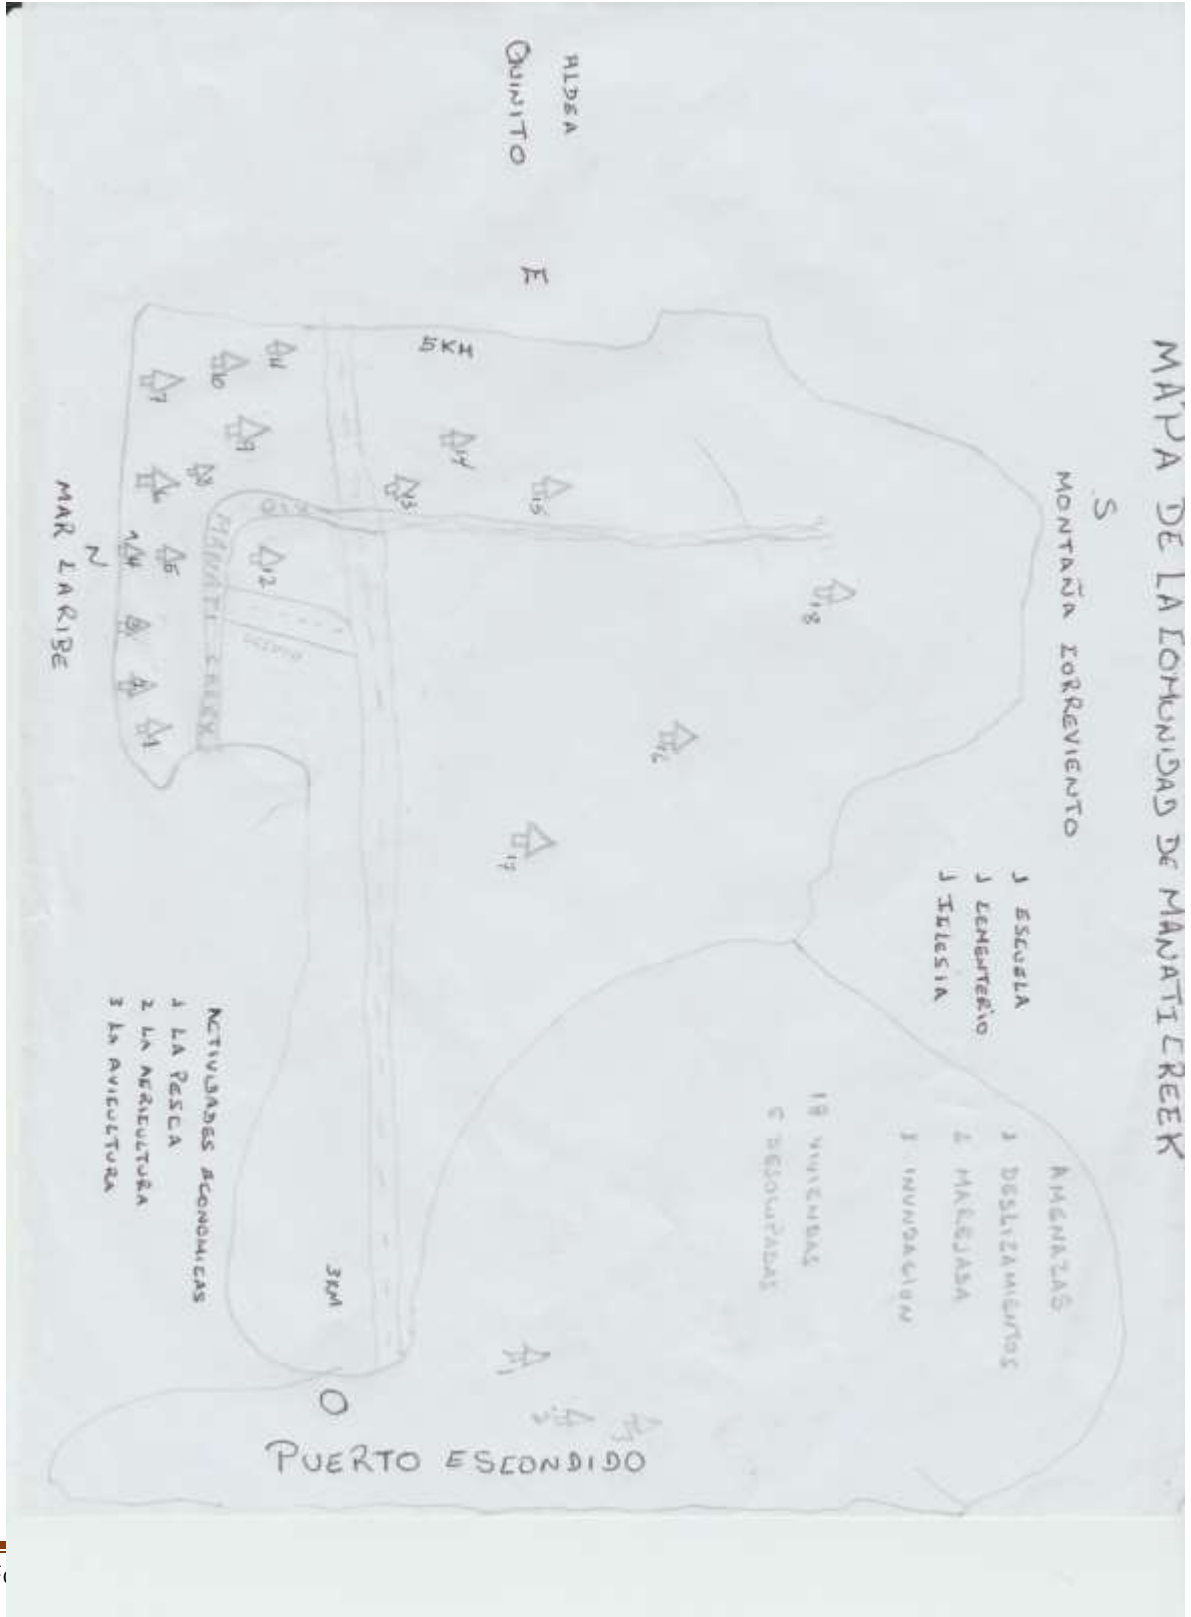 MAPA DE LA COMUNIDAD DE MANATI CREEK
S
MONTAÑA CORREVIENTO
ALDEA
QUINITO
E
5 KM
1 ESCUELA
1 CEMENTERIO
1 IGLESIA
AMENAZAS
1 DESLIZAMIENTOS
2 MAREJADA
3 INUNDACION
18 VIVIENDAS
5 DESOCUPADAS
18
16
17
15
14
13
11
10
9
8
7
6
5
4
3
2
1
12
RIO
MANATI CREEK
N
MAR CARIBE
ACTIVIDADES ECONOMICAS
1 LA PESCA
2 LA AGRICULTURA
3 LA AVICULTURA
3KM
O
PUERTO ESCONDIDO
1
2
3